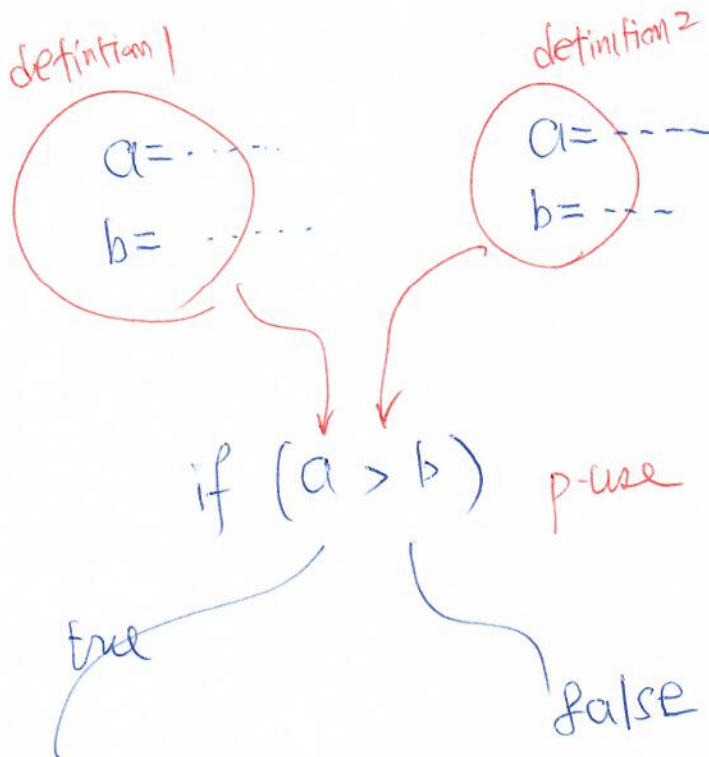 defintion 1
definition 2
a= ......
b= ......
a= -----
b= ---
if (a > b)
p-use
true
false